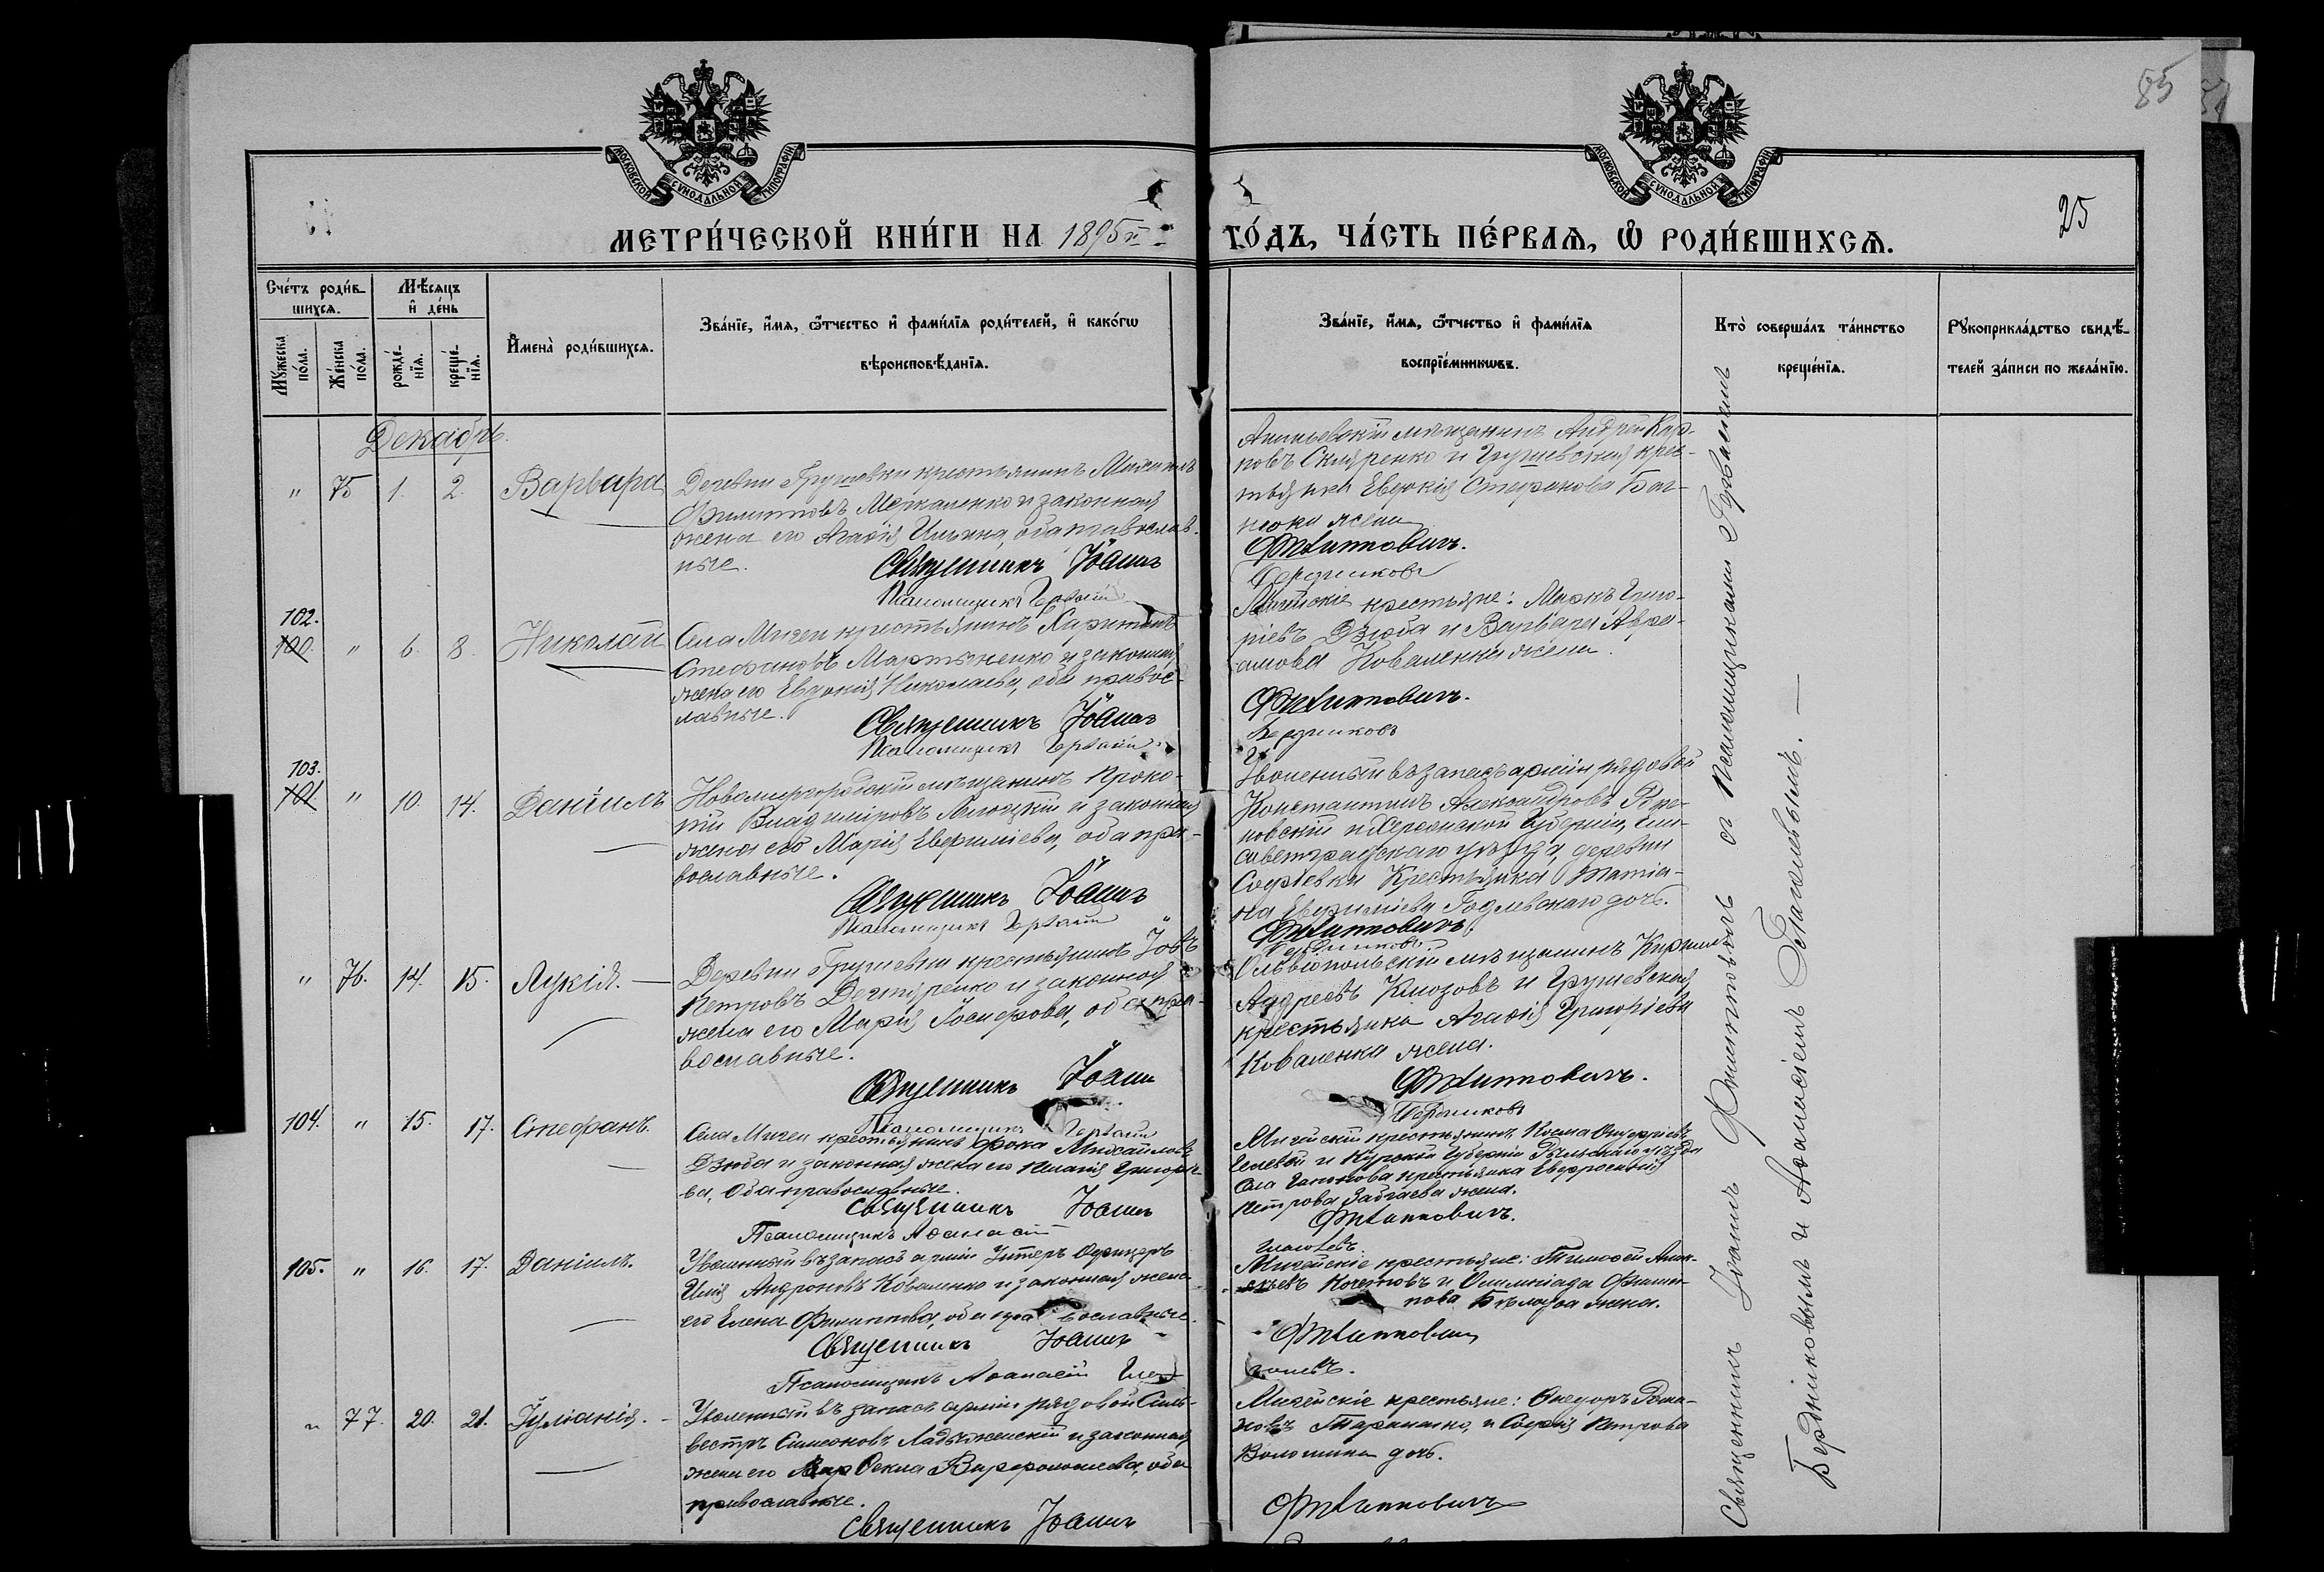 85
МОСКОВСКОЙ СѴНОДАЛЬНОЙ ТИПОГРАФІИ
МОСКОВСКОЙ СѴНОДАЛЬНОЙ ТИПОГРАФІИ
25
МЕТРИ́ЧЕСКОЙ КНИ́ГИ НА 1895й
ГО́ДЪ, ЧА́СТЬ ПЕ́РВАѦ, Ѡ РОДИ́ВШИХСѦ.
Сче́тъ роди́в-
шихсѧ.
Мꙋ́жеска по́ла.
Же́нска по́ла.
Мѣ́сяцъ
и҆ де́нь
рожде́-
нїѧ.
креще́-
нїѧ.
И҆мена̀ роди́вшихсѧ.
Зва́нїе, и҆́мѧ, ѻ҆́тчество и҆ фами́лїѧ роди́телей, и҆ како́гѡ
вѣроисповѣ́данїѧ.
Зва́нїе, и҆́мѧ, ѻ҆́тчество и҆ фами́лїѧ
воспрїе́мникѡвъ.
Кто̀ соверша́лъ та́инство
креще́нїѧ.
Рꙋкоприкла́дство свидѣ́-
телей за́писи по жела́нїю.
Декабрь.
" 75 1. 2. Варвара
Деревни Грушевки крестьянинъ Михаилъ
Филипповъ Москаленко и законная
жена его Агафія Ильина, оба православ-
ные.
Священникъ Іоаннъ
Псаломщикъ Гервасій
Ананьевскій мѣщанинъ Андрей Кар-
повъ Скляренко и Грушевская крес-
тьянка Евдокія Стефанова Баг-
нюка жена
Филипповичъ.
Бердниковъ
102.
100. " 6. 8. Николай
Села Мигеи крестьянинъ Харитонъ
Стефановъ Мартыненко и законная
жена его Евдокія Николаева, оба правос-
лавные.
Священникъ Іоаннъ
Псаломщикъ Гервасій
Мигейскіе крестьяне: Маркъ Григо-
ріевъ Дзюба и Варвара Авра-
амова Коваленка жена.
Филипповичъ.
Бердниковъ
103.
101. " 10. 14. Даніилъ
Новомиргородскій мѣщанинъ Проко-
пій Владиміровъ и законная
жена его Марія Евфиміева, оба пра-
вославные.
Священникъ Іоаннъ
Псаломщикъ Гервасій
Уволенный въ запасъ арміи рядовой
Константинъ Александровъ
новскій и Херсонской губерніи, Ели-
саветградскаго уѣзда, деревни
Софіевки Крестьянка Татіа-
на Евфиміева Годлевскаго дочь.
Филипповичъ
Бердниковъ
" 76. 14. 15. Лукія.
Деревни Грушевки крестьянинъ Іовъ
Петровъ Дегтяренко и законная
жена его Марія Іосифова, оба пра-
вославные.
Священникъ Іоаннъ
Псаломщикъ Гервасій
Ольвіопольскій мѣщанинъ Кириллъ
Андреевъ Клюзовъ и Грушевская
крестьянка Агафія Григоріева
Коваленка жена.
Филипповичъ.
Бердниковъ
104. " 15. 17. Стефанъ.
Села Мигеи крестьянинъ Фока Михайловъ
Дзюба и законная жена его Пелагія Григоріе-
ва, Оба православные.
Священникъ Іоаннъ
Псаломщикъ Аѳанасій
Мигейскій крестьянинъ Косма Онуфріевъ
и Курской Губерніи Рыльскаго уѣзда
Села крестьянка Евфросинія
Петрова жена.
Филипповичъ.
105. " 16. 17. Даніилъ.
Уволенный въ запасъ арміи Унтеръ Офицеръ
Илія Андроновъ Коваленко и законная жена
его Елена Филиппова, оба православные.
Священникъ Іоаннъ
Псаломщикъ Аѳанасій
Мигейскіе крестьяне: Тимофей
Кочетовъ и Олимпіада Филип-
пова Бѣлоуса жена.
Филипповичъ
" 77. 20. 21. Іуліанія.
Уволенный въ запасъ арміи рядовой Силь-
вестръ Симеоновъ Ладыженскій и законная
жена его Ѳекла Варфоломеева, оба
православные.
Священникъ Іоаннъ
Мигейскіе крестьяне: Ѳеодоръ Рома-
новъ Тараненко, и Софія Петрова
Волошина дочь.
Филипповичъ
Священникъ Іоаннъ Филипповичъ съ Псаломщиками Гервасіемъ
Бердниковымъ и Аѳанасіемъ